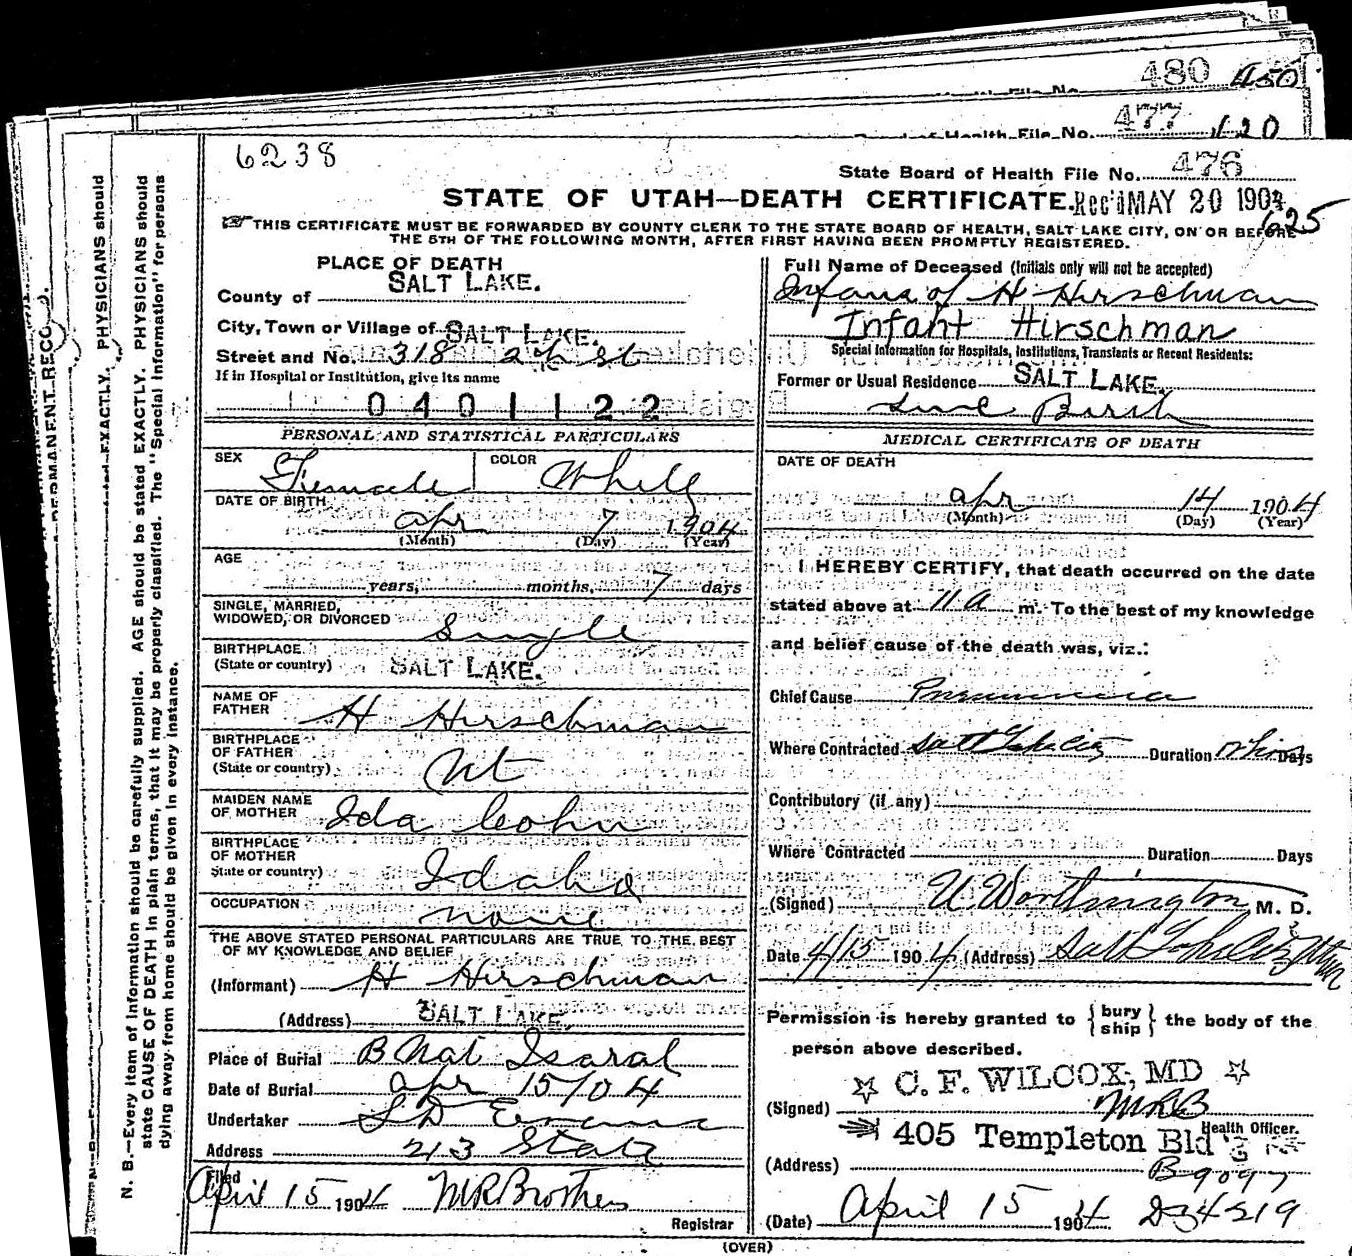 480 450
477 120
Board of Health File No.
6238
State Board of Health File No. 476
STATE OF UTAH—DEATH CERTIFICATE. Rec'd MAY 20 1904
625
THIS CERTIFICATE MUST BE FORWARDED BY COUNTY CLERK TO THE STATE BOARD OF HEALTH, SALT LAKE CITY, ON OR BEFORE
THE 5TH OF THE FOLLOWING MONTH, AFTER FIRST HAVING BEEN PROMPTLY REGISTERED.
PLACE OF DEATH
County of SALT LAKE.
City, Town or Village of SALT LAKE.
Street and No. 318 2nd St
If in Hospital or Institution, give its name
0401122
Full Name of Deceased (Initials only will not be accepted)
Infant of H Hirschman
Infant Hirschman
Special Information for Hospitals, Institutions, Transients or Recent Residents:
Former or Usual Residence SALT LAKE.
Since Birth
PERSONAL AND STATISTICAL PARTICULARS
SEX Female COLOR White
DATE OF BIRTH
Apr 7 1904
(Month) (Day) (Year)
AGE
years, months, 7 days
SINGLE, MARRIED,
WIDOWED, OR DIVORCED Single
BIRTHPLACE
(State or country) SALT LAKE.
NAME OF
FATHER H Hirschman
BIRTHPLACE
OF FATHER
(State or country) Ut
MAIDEN NAME
OF MOTHER Ida Cohn
BIRTHPLACE
OF MOTHER
State or country) Idaho
OCCUPATION none
THE ABOVE STATED PERSONAL PARTICULARS ARE TRUE TO THE BEST
OF MY KNOWLEDGE AND BELIEF
(Informant) H Hirschman
(Address) SALT LAKE.
Place of Burial B Nai Isaral
Date of Burial Apr 15/04
Undertaker S D Evans
Address 213 State
Filed
April 15 1904 MR Brothers
Registrar
MEDICAL CERTIFICATE OF DEATH
DATE OF DEATH
Apr 14 1904
(Month) (Day) (Year)
I HEREBY CERTIFY, that death occurred on the date
stated above at 11 A m. To the best of my knowledge
and belief cause of the death was, viz.:
Chief Cause Pneumonia
Where Contracted Salt Lake City Duration Days
Contributory (if any)
Where Contracted Duration Days
(Signed) U. Worthington M. D.
Date 4/15 1904 (Address) Salt Lake City Utah
Permission is hereby granted to { bury
ship } the body of the
person above described.
C. F. WILCOX, MD
(Signed) MRB
Health Officer.
405 Templeton Bld'g
(Address) B9097
(Date) April 15 1904 D34219
(OVER)
N. B.—Every item of information should be carefully supplied. AGE should be stated EXACTLY. PHYSICIANS should
state CAUSE OF DEATH in plain terms, that it may be properly classified. The "Special Information" for persons
dying away from home should be given in every instance.
EXACTLY. PHYSICIANS should
PERMANENT RECO